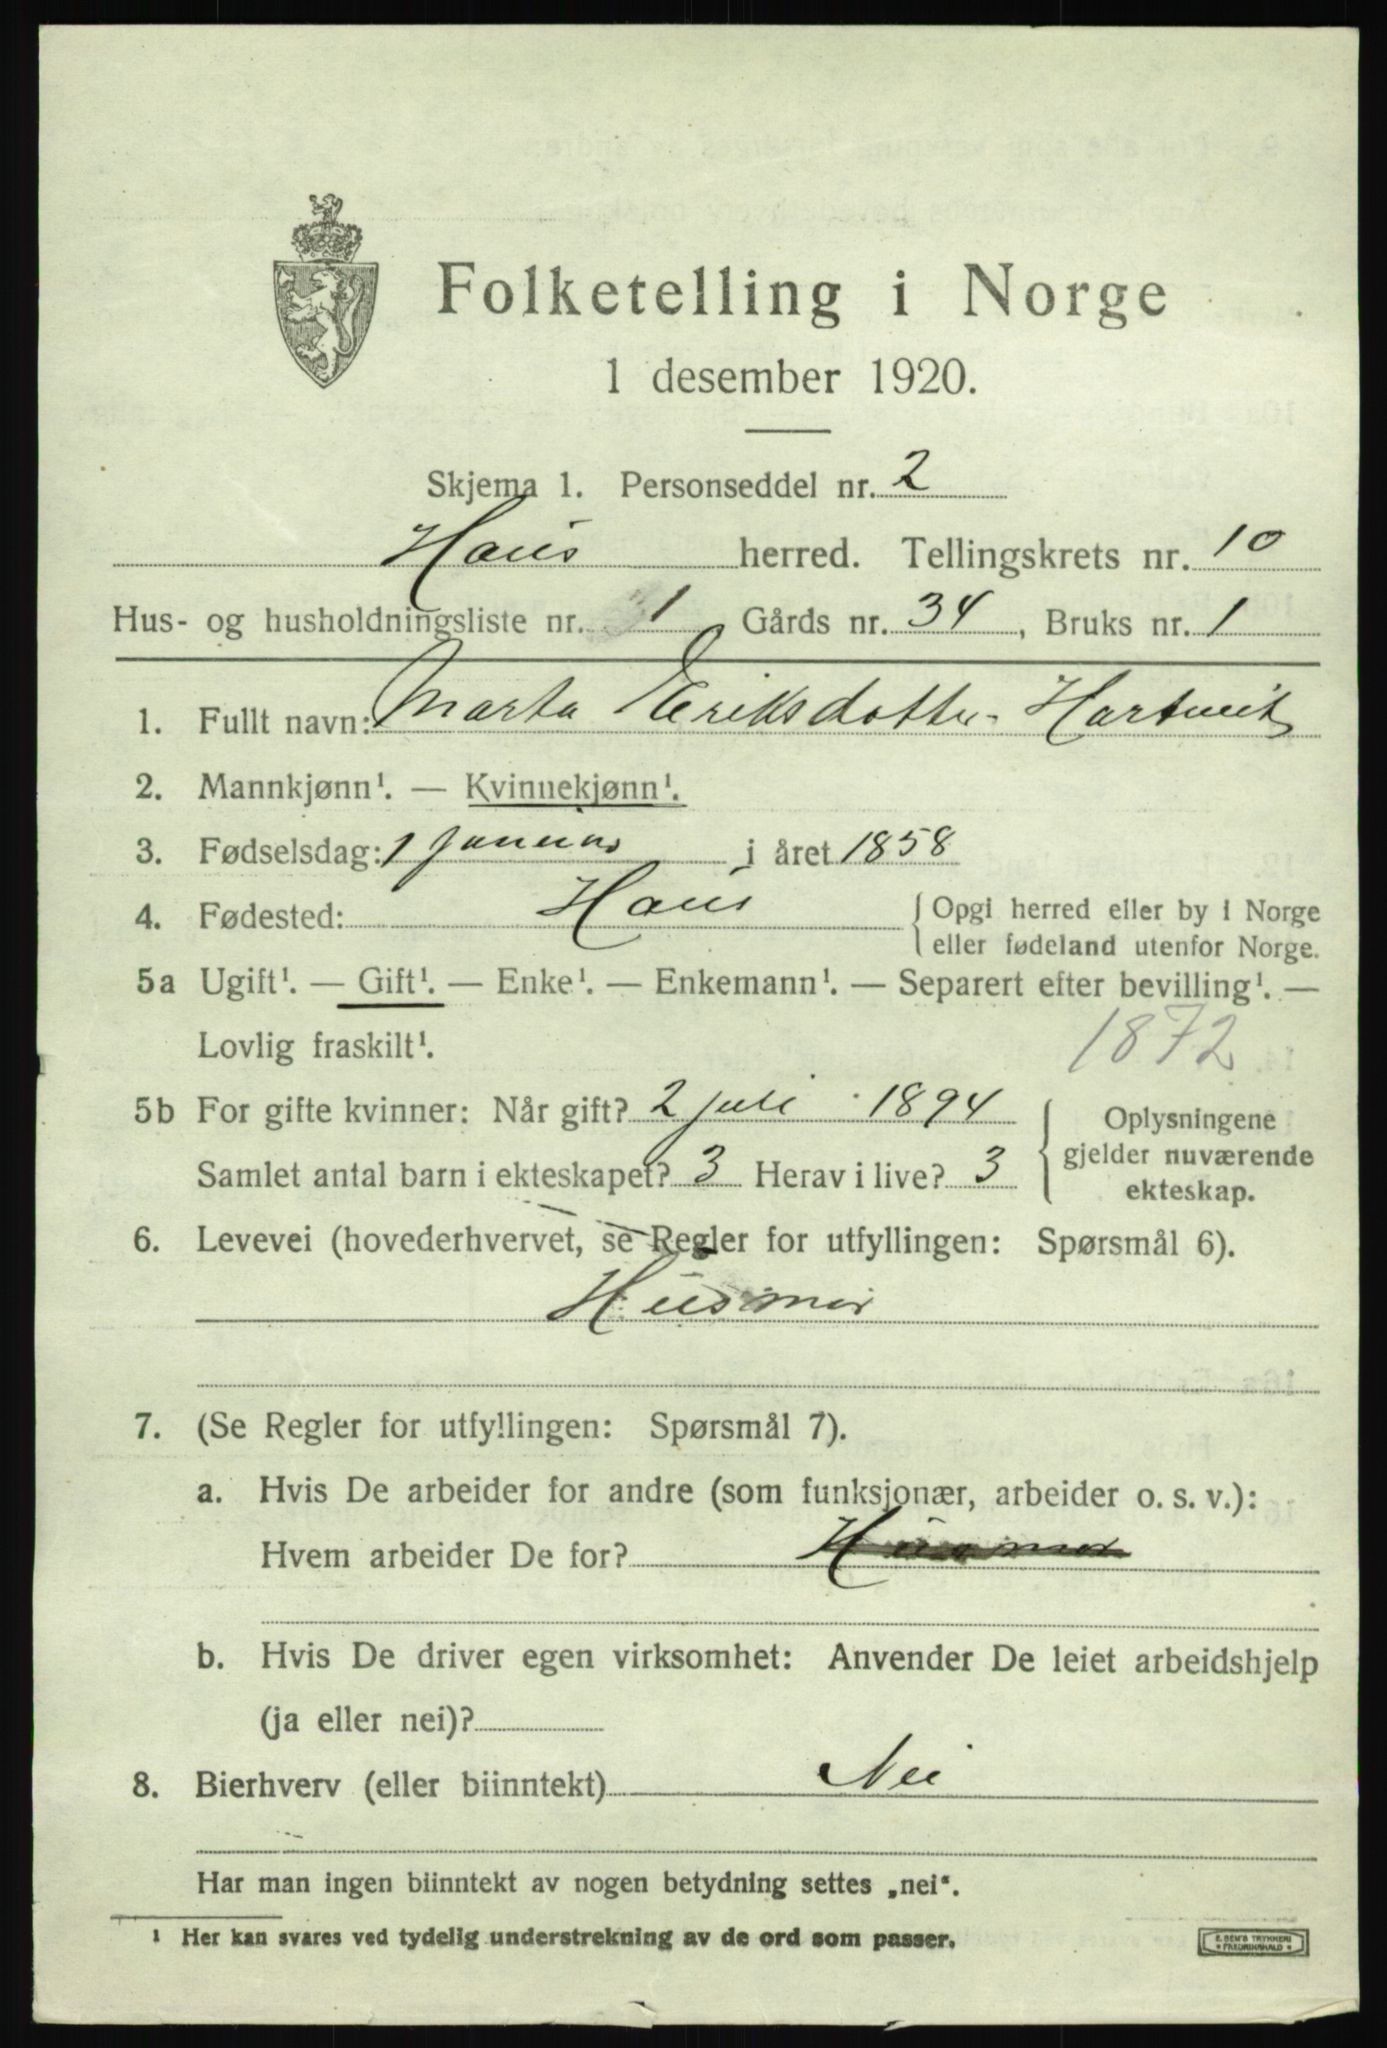 Folketelling i Norge
1 desember 1920.
Skjema 1. Personseddel nr. 2
Haus herred. Tellingskrets nr. 10
Hus- og husholdningsliste nr. 1 Gårds nr. 34, Bruks nr. 1
1. Fullt navn: Marta Eriksdotter Hartveit
2. Mannkjønn¹. — Kvinnekjønn¹.
3. Fødselsdag: 1 januar i året 1858
4. Fødested: Haus { Opgi herred eller by i Norge
eller fødeland utenfor Norge.
5a Ugift¹. — Gift¹. — Enke¹. — Enkemann¹. — Separert efter bevilling¹. —
Lovlig fraskilt¹. 1872
5b For gifte kvinner: Når gift? 2 juli 1894 { Oplysningene
gjelder nuværende
ekteskap.
Samlet antal barn i ekteskapet? 3 Herav i live? 3
6. Levevei (hovederhvervet, se Regler for utfyllingen: Spørsmål 6).
Husmor
7. (Se Regler for utfyllingen: Spørsmål 7).
a. Hvis De arbeider for andre (som funksjonær, arbeider o. s. v.):
Hvem arbeider De for? Husmor
b. Hvis De driver egen virksomhet: Anvender De leiet arbeidshjelp
(ja eller nei)?
8. Bierhverv (eller biinntekt) Nei
Har man ingen biinntekt av nogen betydning settes „nei“.
¹ Her kan svares ved tydelig understrekning av de ord som passer.
E. SEM'S TRYKKERI
* FREDRIKSHALD *